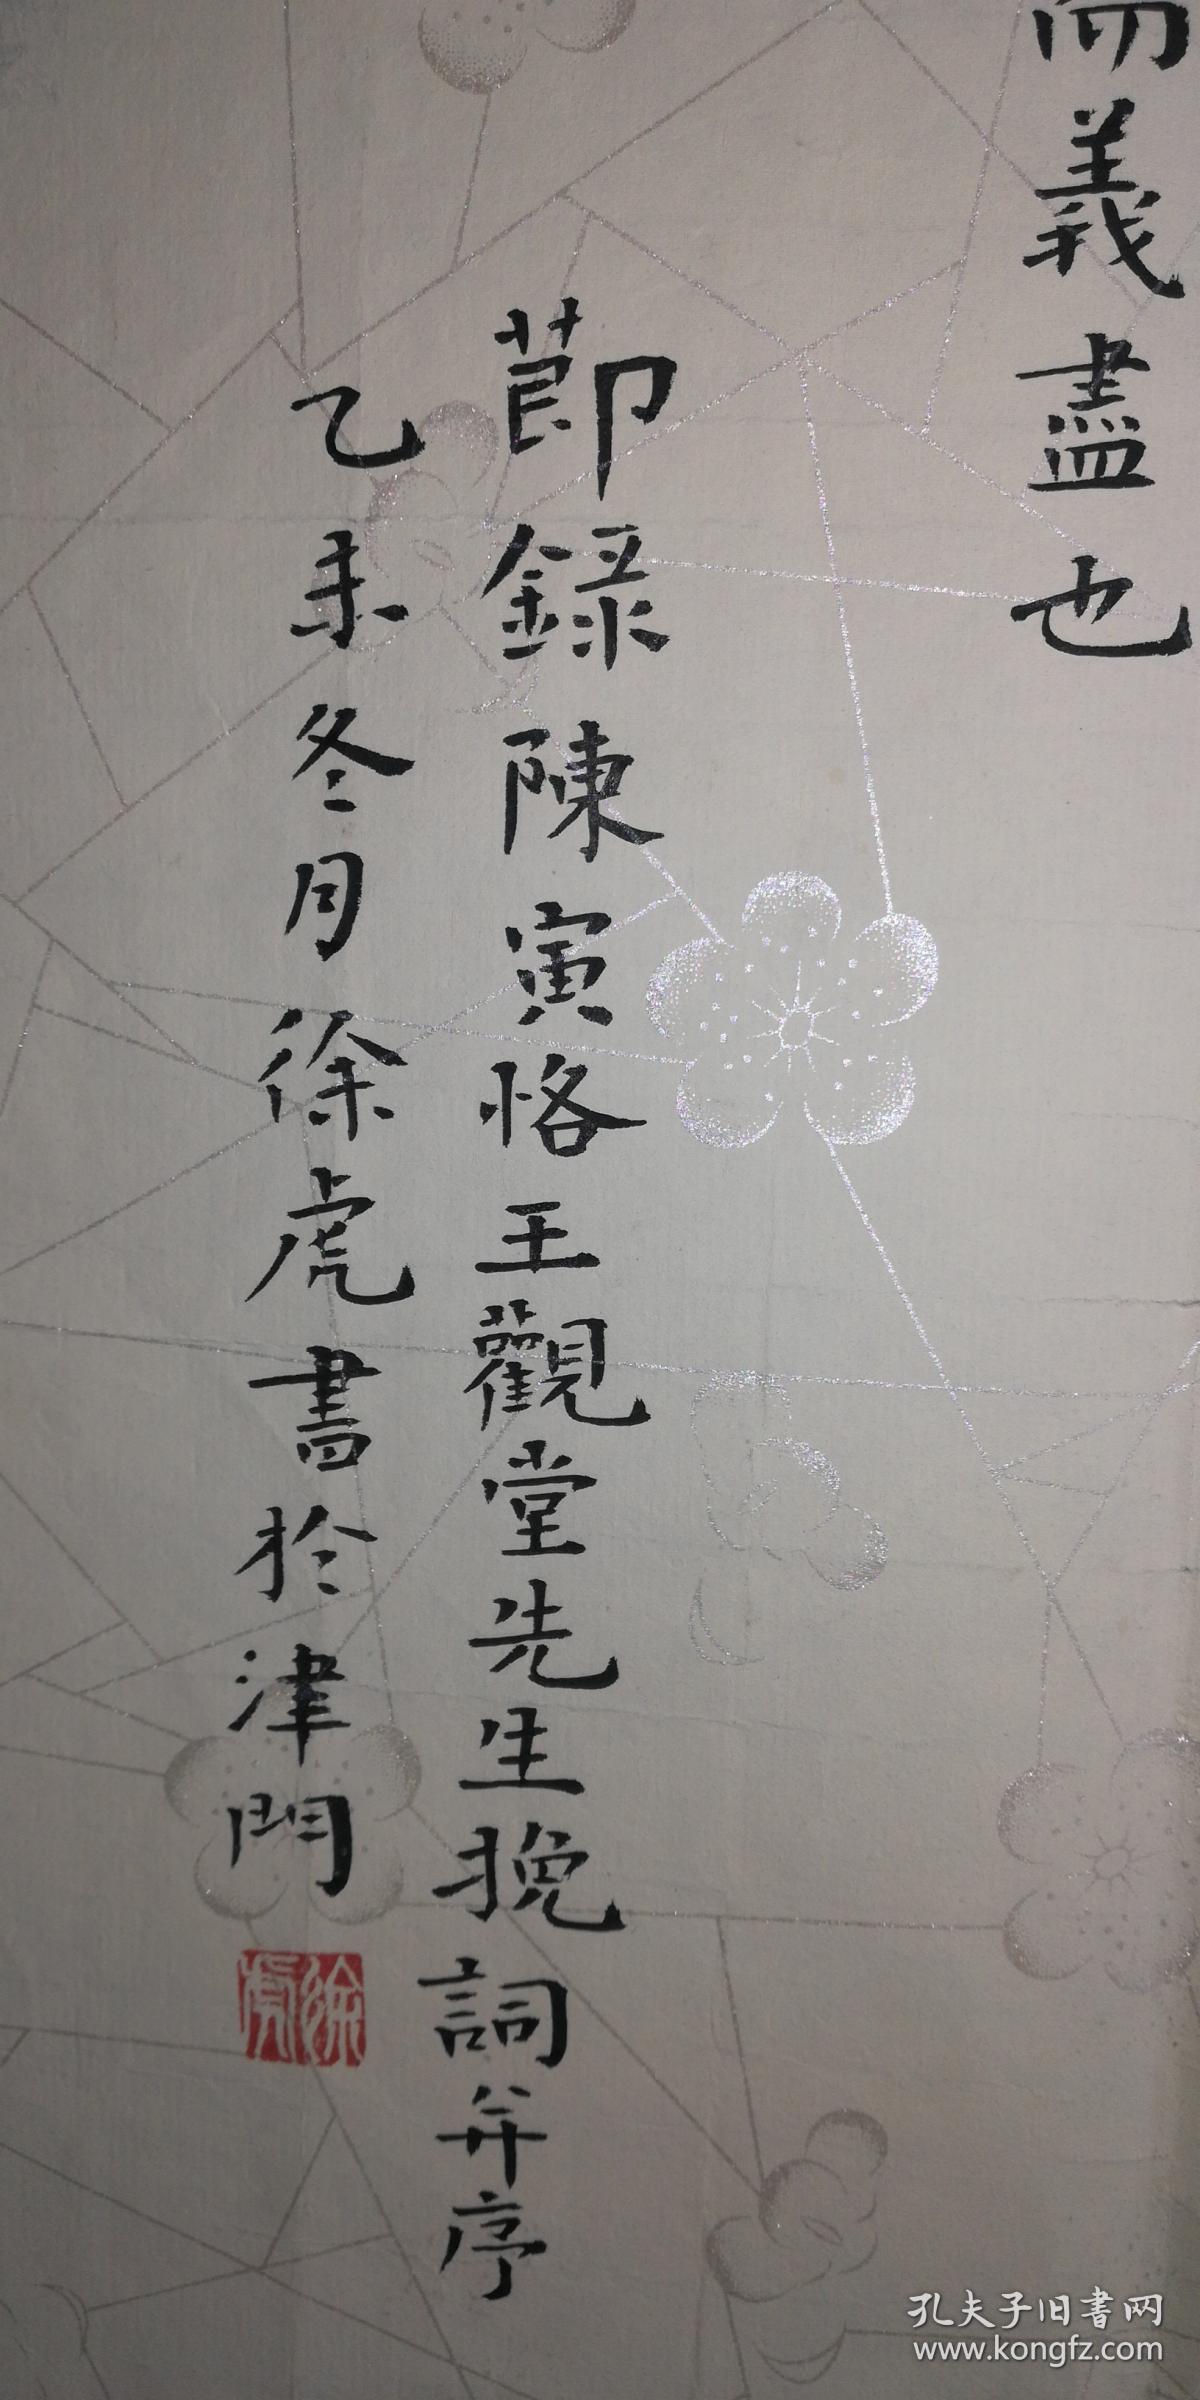 而義盡也
節錄陳寅恪王觀堂先生挽詞并序
乙未冬月徐虎書於津門
徐虎
孔夫子旧書网
www.kongfz.com